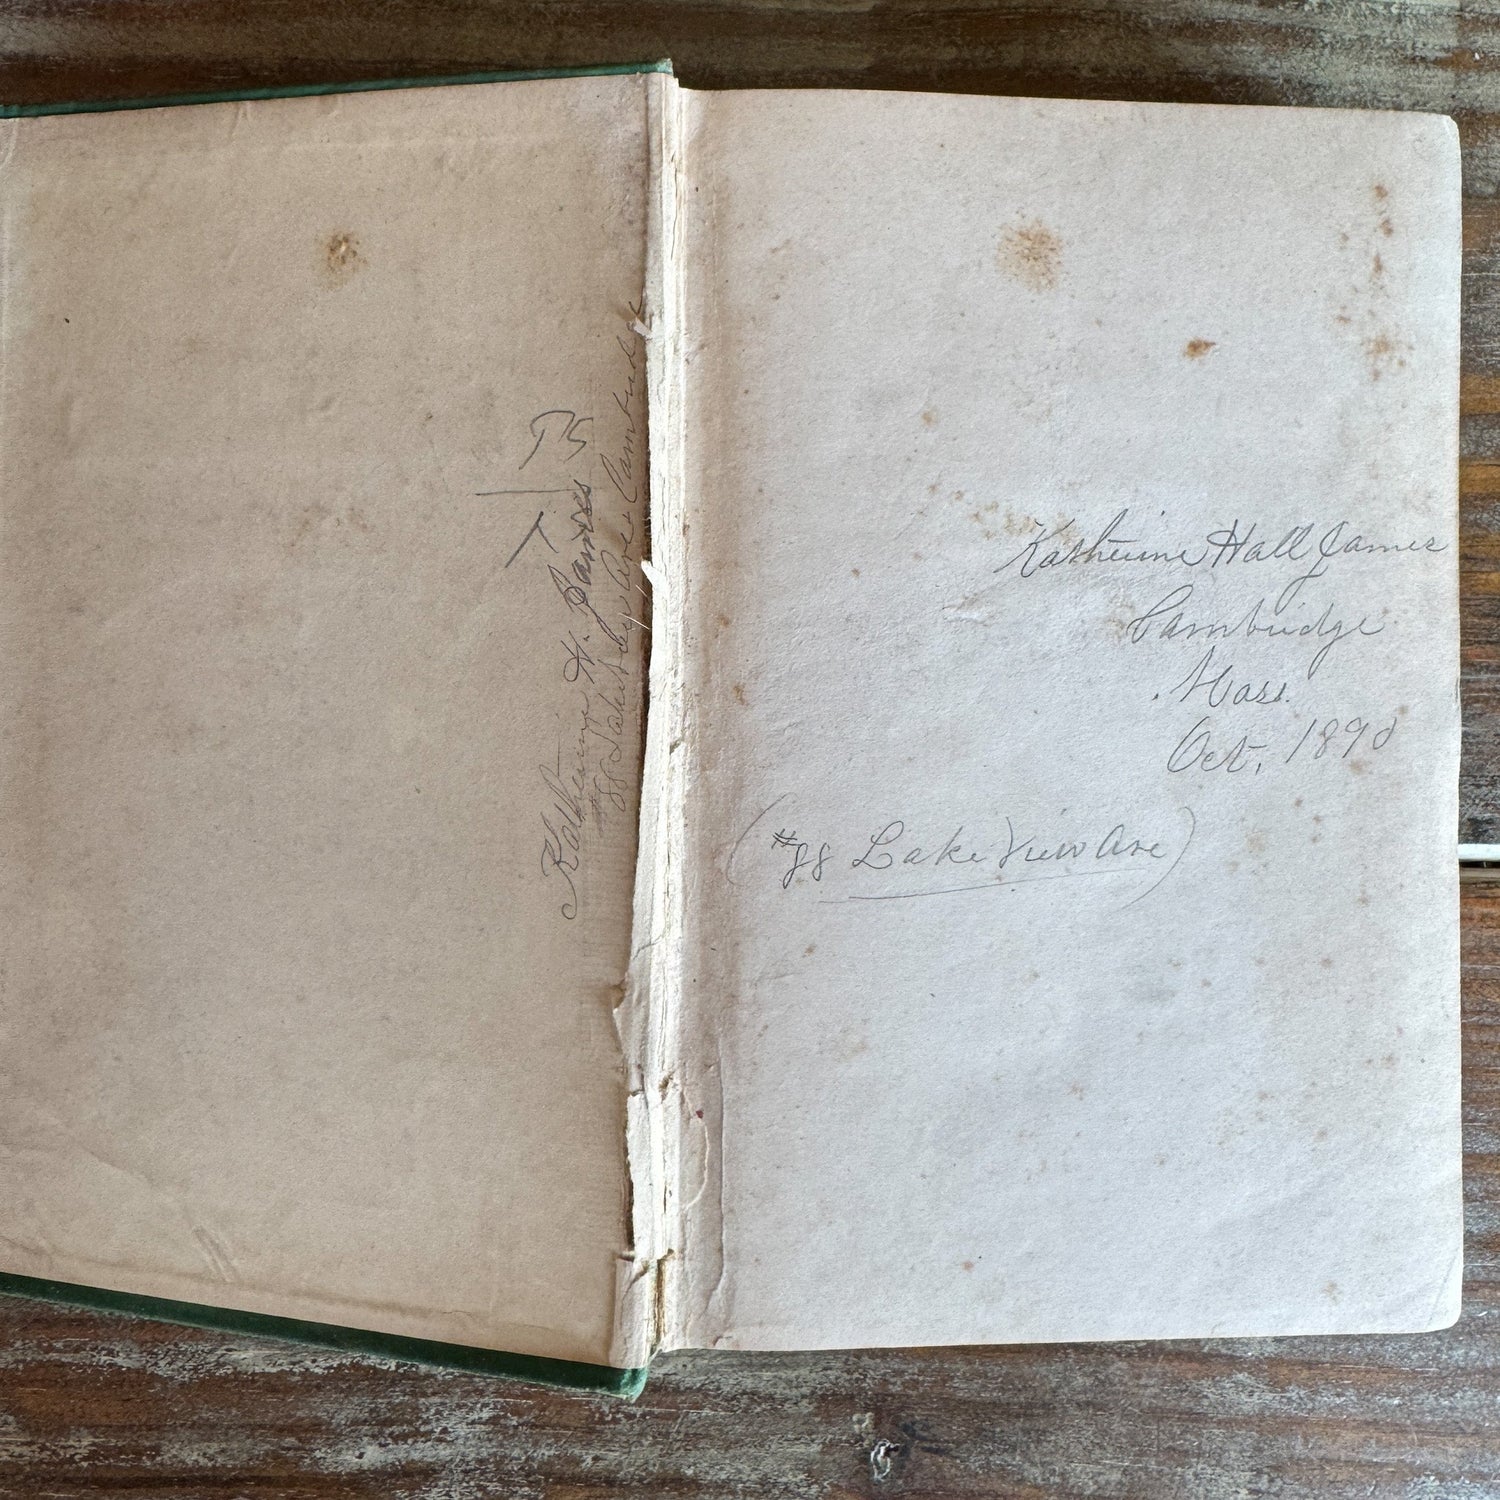 Katherine H. James
88 Ave. Cambridge
Katherine Hall James
Cambridge
Mass.
Oct, 1890
(#88 Lake View Ave)